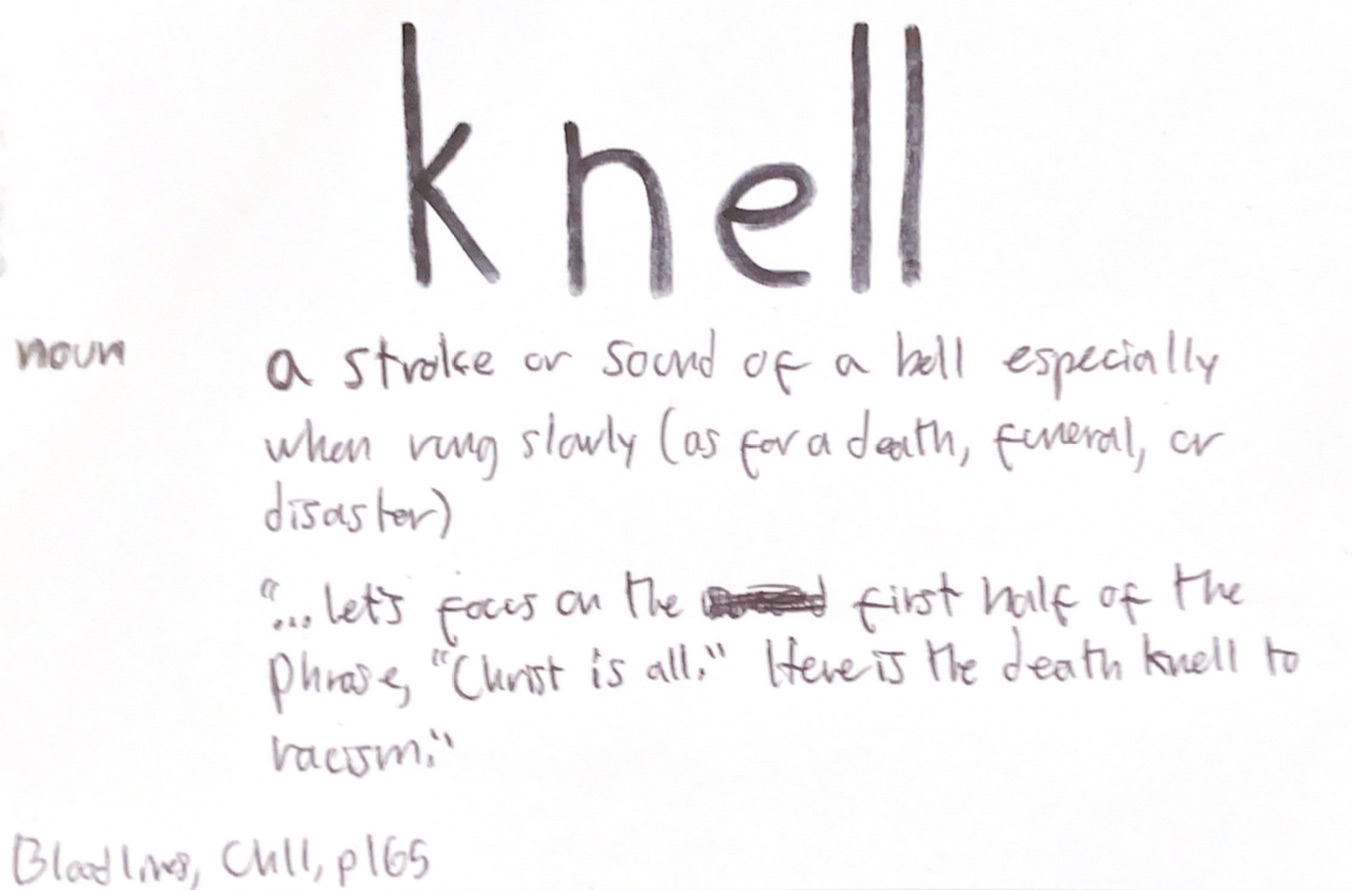 knell
noun a stroke or sound of a bell especially
when rung slowly (as for a death, funeral, or
disaster)
"...let's focus on the first half of the
phrase, "Christ is all." Here is the death knell to
racism."
Bloodlines, Ch11, p165